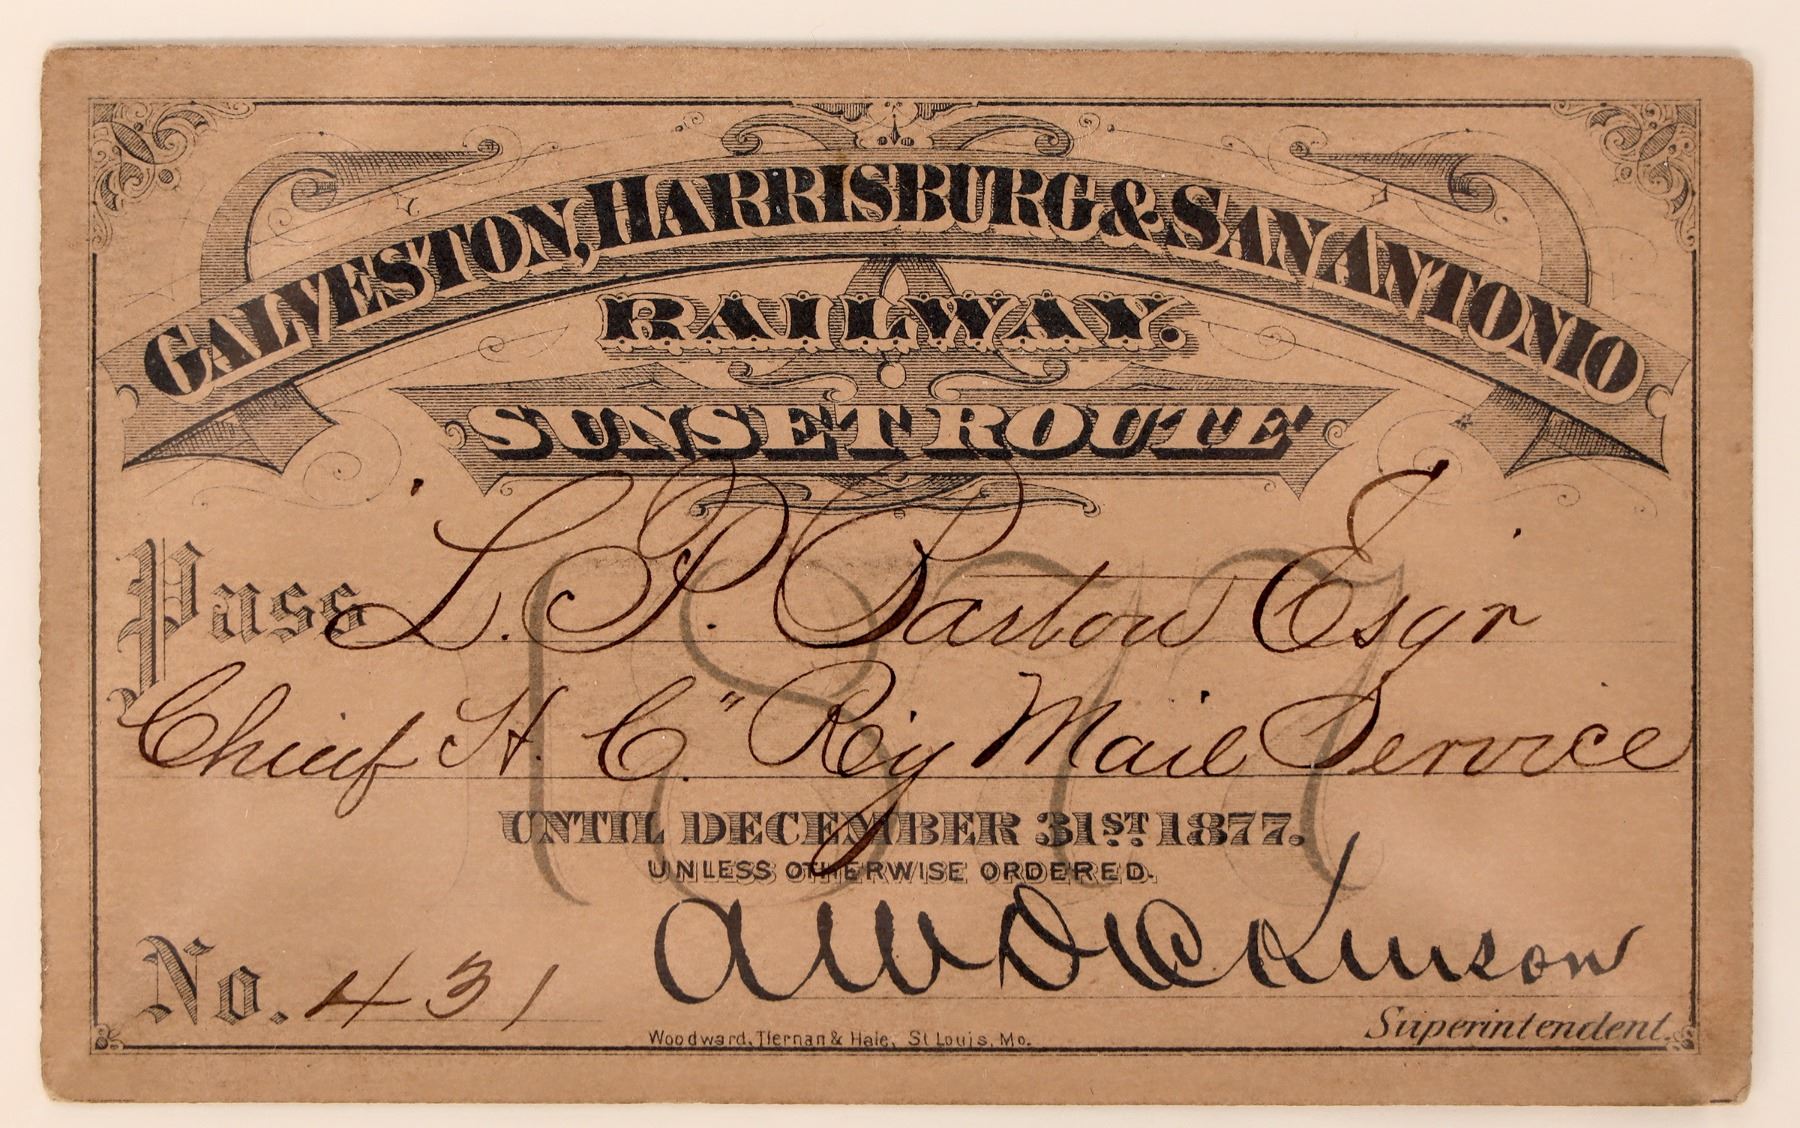 GALVESTON, HARRISBURG & SAN ANTONIO
RAILWAY.
SUNSET ROUTE
1877
Pass L. P. Bartow Esqr
Chief H. C." Ry Mail Service
UNTIL DECEMBER 31ST. 1877.
UNLESS OTHERWISE ORDERED.
No. 431
A W Dickinson
Superintendent.
Woodward, Tiernan & Hale, St Louis, Mo.